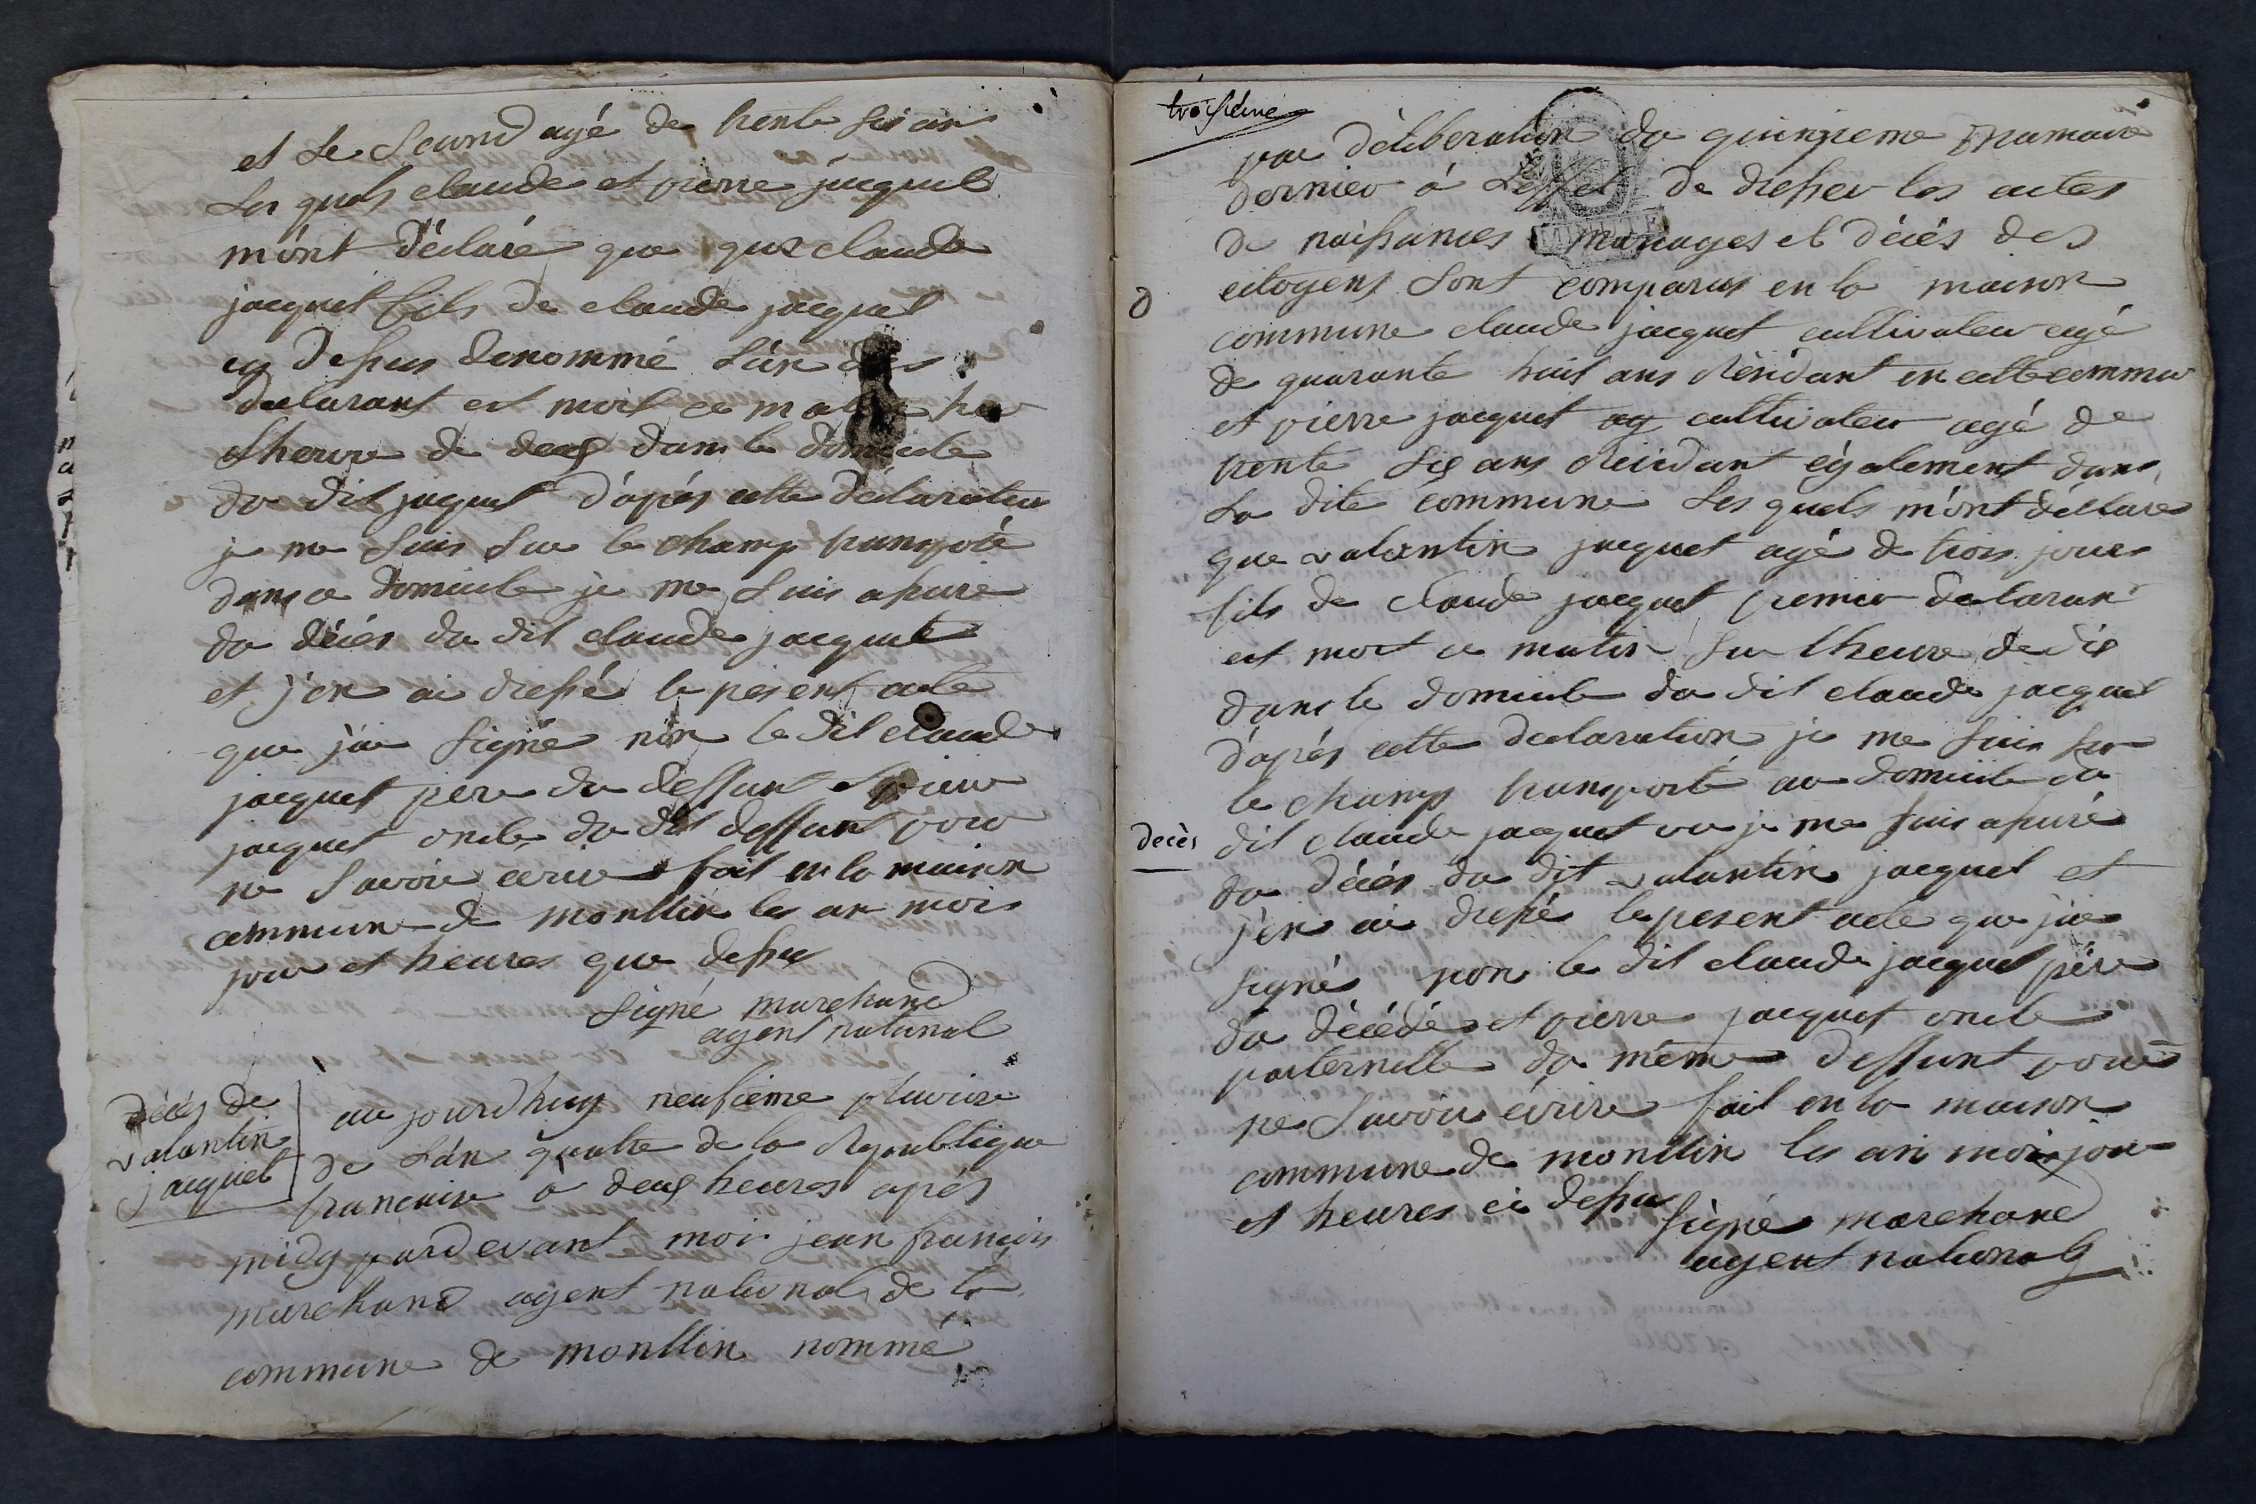 et Le Second agé de trente six ans
Les quels claude et pierre jacquet
m'ont déclaré que que claude
jacquet fils de claude jacquet
cy dessus denommé L'un des
declarant est mort ce matin sur
Lheure de deux dans le domicile
du dit jaquet d'apés cette declaration
je me suis sur le champ transporté
dans ce domicile je me suis assuré
du décés du dit claude jacquet
et j'en ai dressé le pésent acte
que j'ai signé non le dit claude
jacquet pere du deffunt et pierre
jacquet oncle du dit deffunt pour
ne savoir ecrire fait en la maison
commune de monttin les an mois
jour et heures que dessus
Signé marchand
agent national
décés de
valantin
jacquet
au jourdhuy neufieme pluviose
de L'an quatre de la Republique
francaise a deux heures apés
midy pardevant moi jean francois
marchand agent national de la
commune de monttin nommé
troisieme
par déliberation du quinzieme Brumaire
dernier á Leffet de dresser les actes
de naissances mariages et décés des
citoyens sont comparus en la maison
commune claude jacquet cultivateur agé
de quarante huit ans Résidant en cette commune
et pierre jacquet cultivateur agé de
trente six ans Résidant également dans
La dite commune Les quels m'ont déclaré
que valantin jacquet agé de trois jours
fils de claude jacquet premier declarant
est mort ce matin sur lheure de dix
dans le domicile du dit claude jacquet
d'apés cette declaration je me suis sur
le champ transporté au domicile du
dit claude jacquet ou je me suis assuré
decès
du décés du dit valantin jacquet et
j'en ai dressé le pesent acte que j'ai
signé non le dit claude jacquet pére
du décédé et pierre jacquet oncle
paternelle du même deffunt pour
ne savoir écrire fait en la maison
commune de monttin les an mois jour
et heures ci dessus
signé marchand
agent national